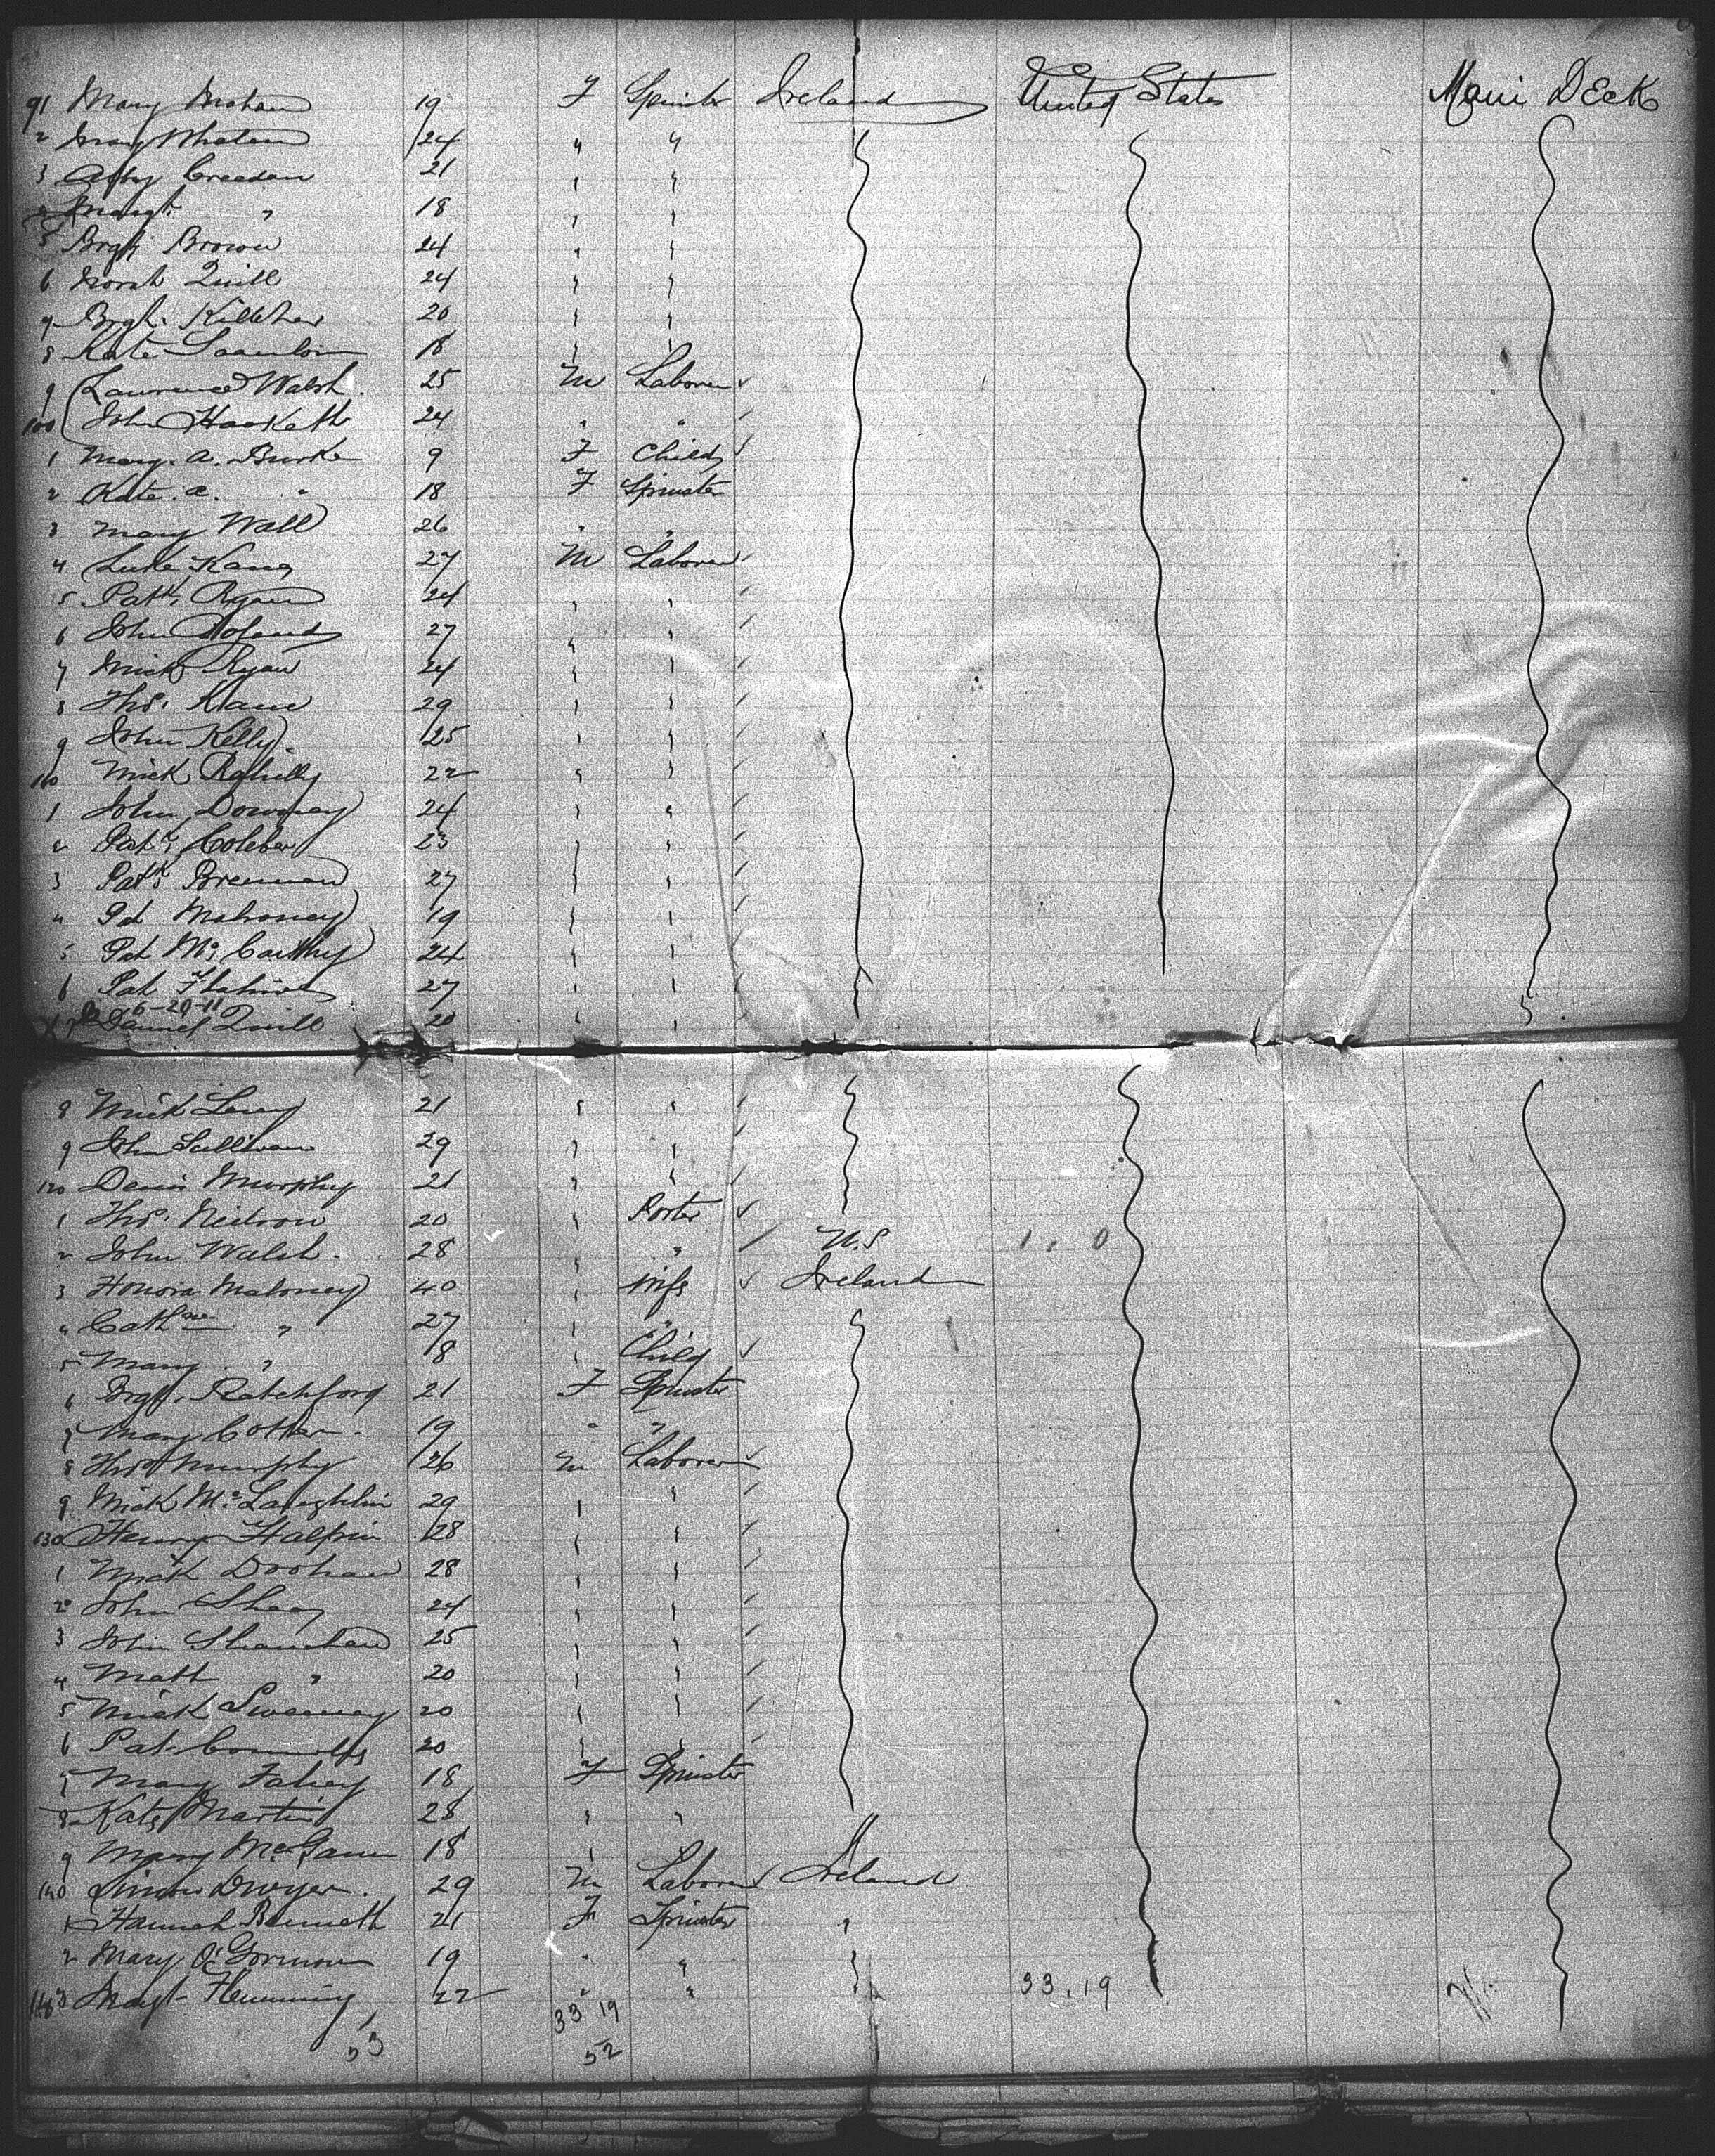 91 Mary Mohan 19 F Spinster Ireland United States Main Deck
2 Mary Whelan 24 " "
3 Abby Creedan 21 " "
4 Margt. " 18 " "
5 Brgt. Brown 24 " "
6 Norah Quill 24 " "
7 Brgt. Killeher 20 " "
8 Kate 18 " "
9 Lawrence Walsh. 25 M Laborer
100 John Hackett 24 " "
1 Mary. A. Burke 9 F Child
2 Kate. A. " 18 F Spinster
3 Mary Wall 26 " "
4 Luke Kane 27 M Laborer
5 Patk. Ryan 24 " "
6 John Boland 27 " "
7 Mick Ryan 24 " "
8 Thos. Kane 29 " "
9 John Kelly. 25 " "
110 Mick Rahilly 22 " "
1 John Downey 24 " "
2 Patk. 23 " "
3 Patk. Brennan 27 " "
4 Pat Mahoney 19 " "
5 Pat McCarthy 24 " "
6 Pat 27 " "
6-20-11
7 Daniel Quill 20 " "
8 Mick Lacey 21 " "
9 John Sullivan 29 " "
120 Denis Murphy 21 " "
1 Thos. Neilson 20 " Porter
2 John Walsh. 28 " U.S 1. 0
3 Honora Maloney 40 " Wife Ireland
4 Cathne " 27 " "
5 Mary. " 18 " Child
6 Brgt. Ratchford 21 F Spinster
7 Mary Cotter. 19 " "
8 Thos Murphy 26 M Laborer
9 Mick McLaughlin 29 " "
130 Henry Halpin 28 " "
1 Mick Doohan 28 " "
2 John Shea 24 " "
3 John Shanahan 25 " "
4 Matt " 20 " "
5 Mick Sweeney 20 " "
6 Pat Connolly 20 " "
7 Mary Fahey 18 F Spinster
8 Kate Martin 28 " "
9 Mary McGann 18 " "
140 Simon Dwyer. 29 M Laborer Ireland
1 Hannah Bennett 21 F Spinster "
2 Mary O'Gorman 19 " " "
143 Margt. Flemming 22 " " " 33.19
33 19
53 52